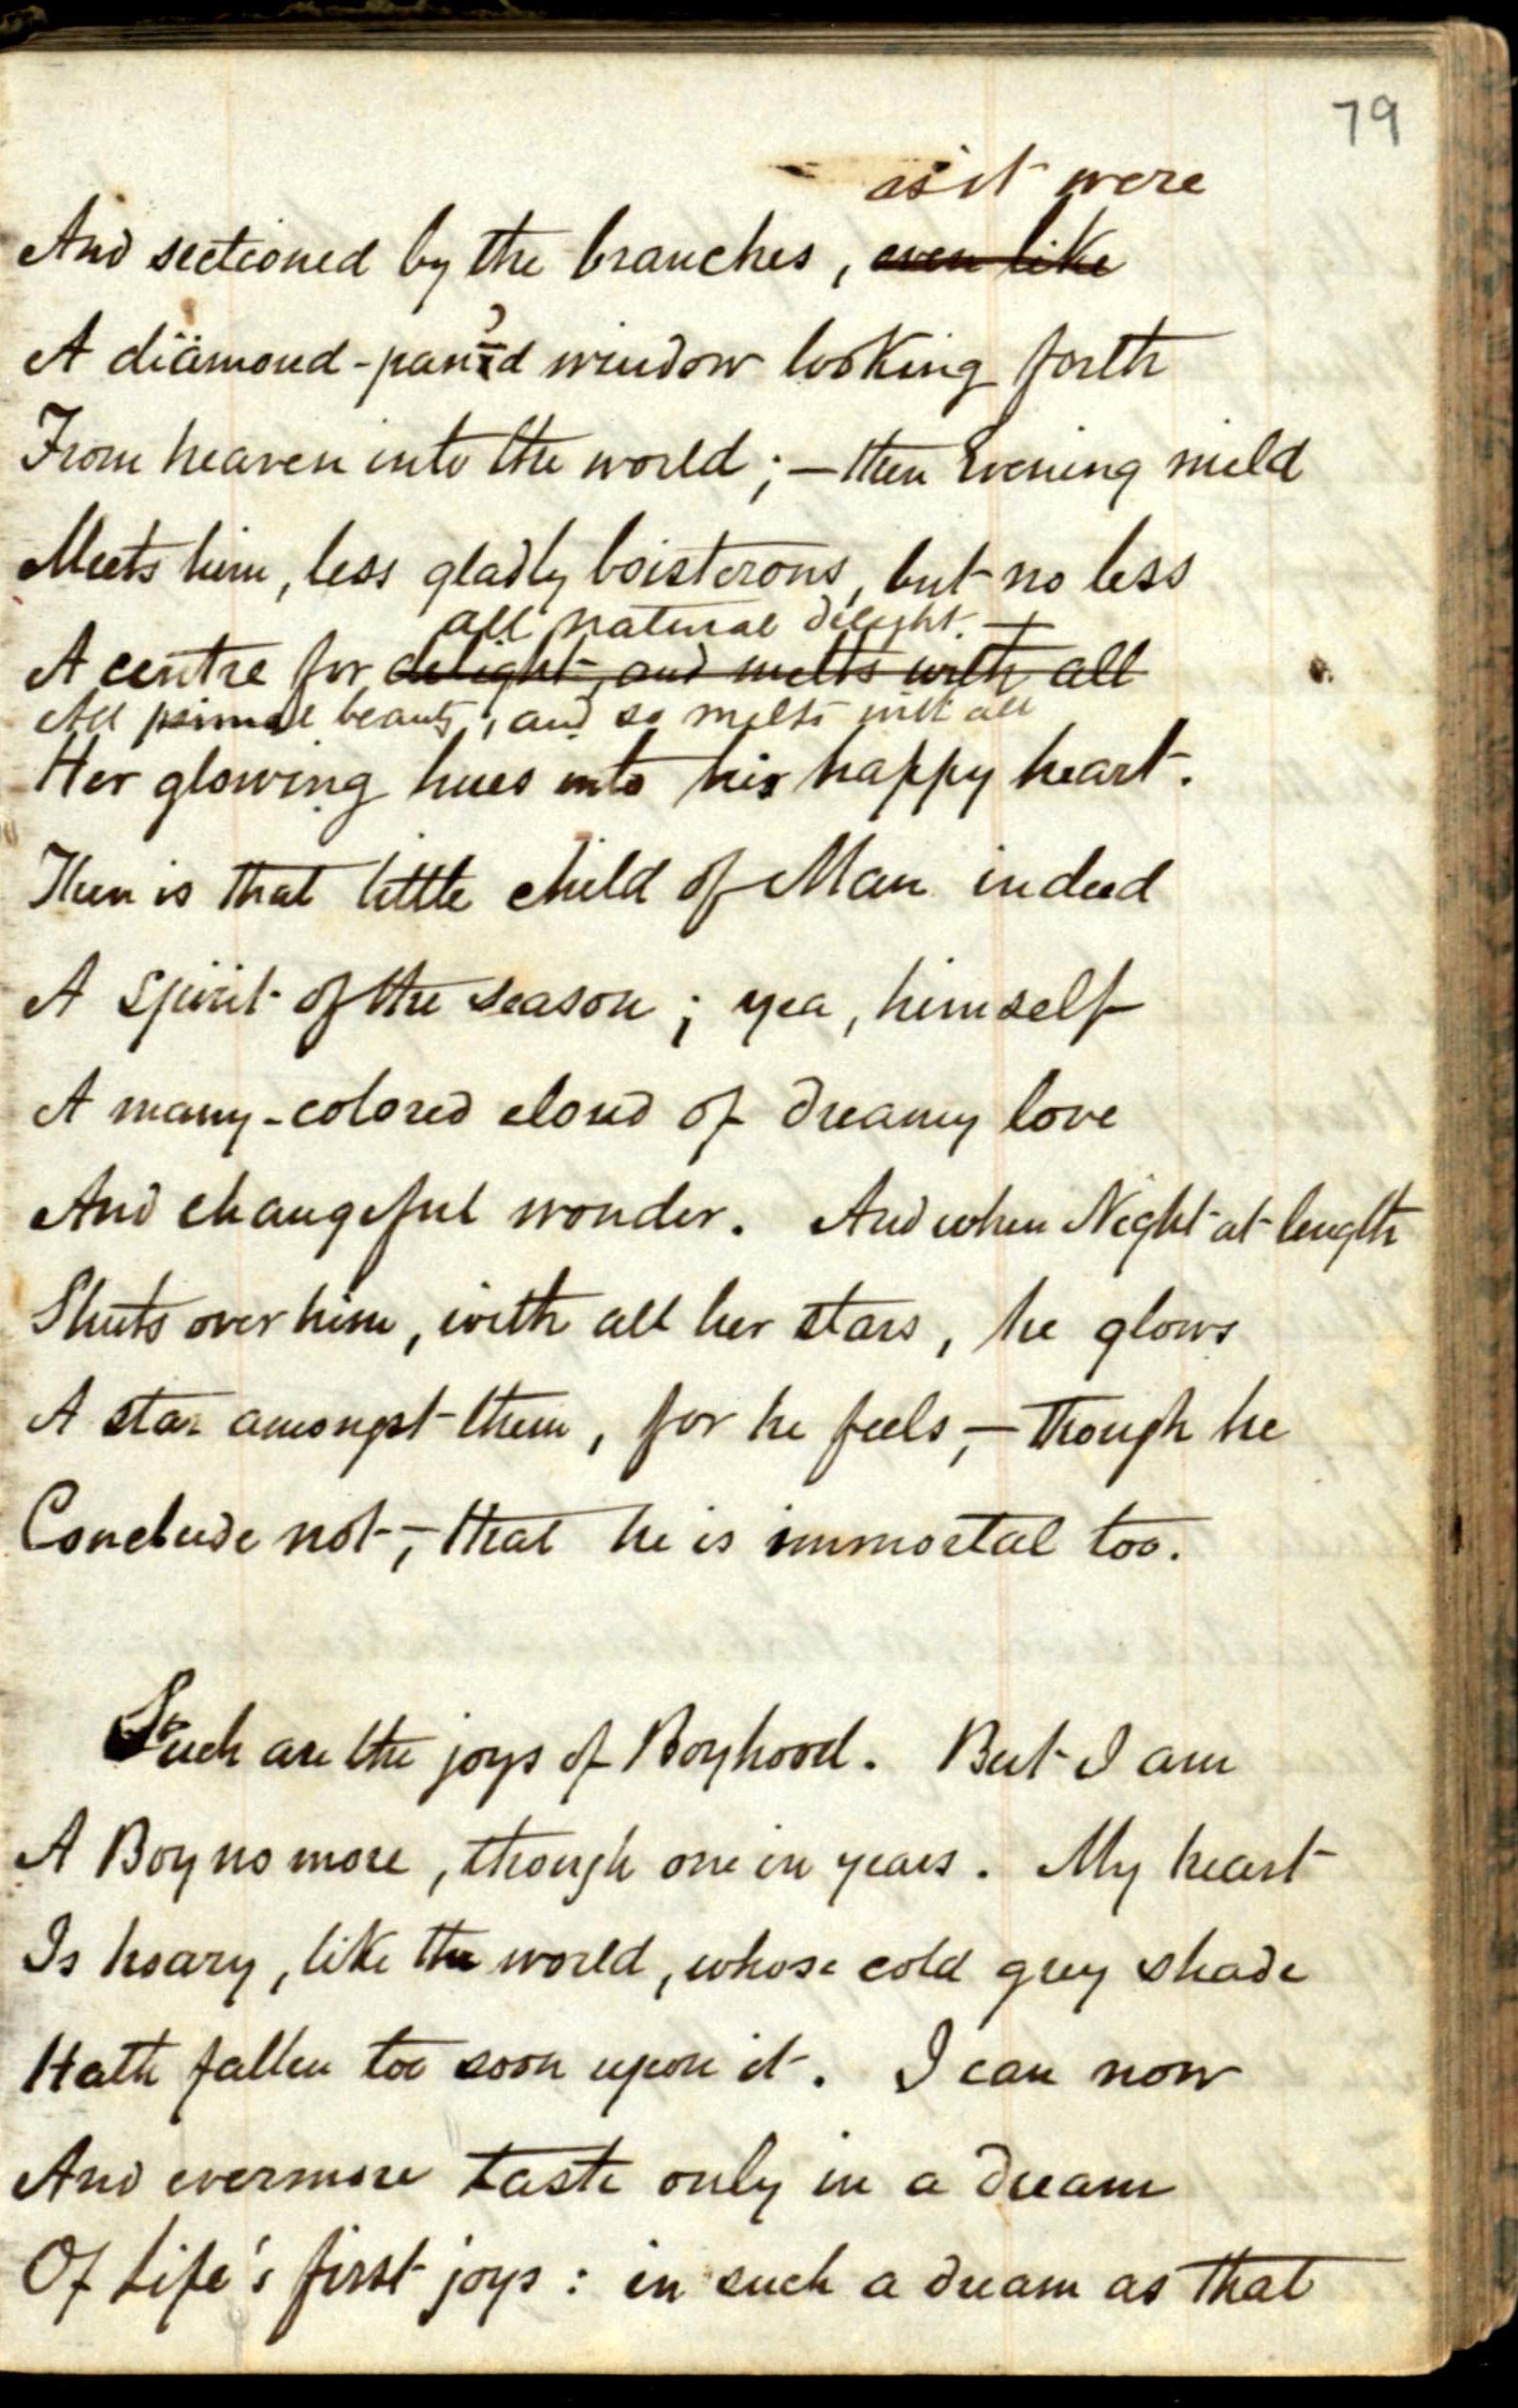 79
as it were
And sectioned by the branches, even like
A diämond-pan'd window looking forth
From heaven into the world; — then Evening mild
Meets him, less gladly boisterous, but no less
all natural delight. +
A centre for delight, and melts with all
All primal beauty, and so melts with all
Her glowing hues into his happy heart.
Then is that little child of Man indeed
A Spirit of the season; yea, himself
A many-colored cloud of dreamy love
And changeful wonder. And when Night at length
Shuts over him, with all her stars, he glows
A star amongst them, for he feels, — though he
Conclude not, — that he is immortal too.
Such are the joys of Boyhood. But I am
A Boy no more, though one in years. My heart
Is hoary, like the world, whose cold grey shade
Hath fallen too soon upon it. I can now
And evermore taste only in a dream
Of Life's first joys: in such a dream as that